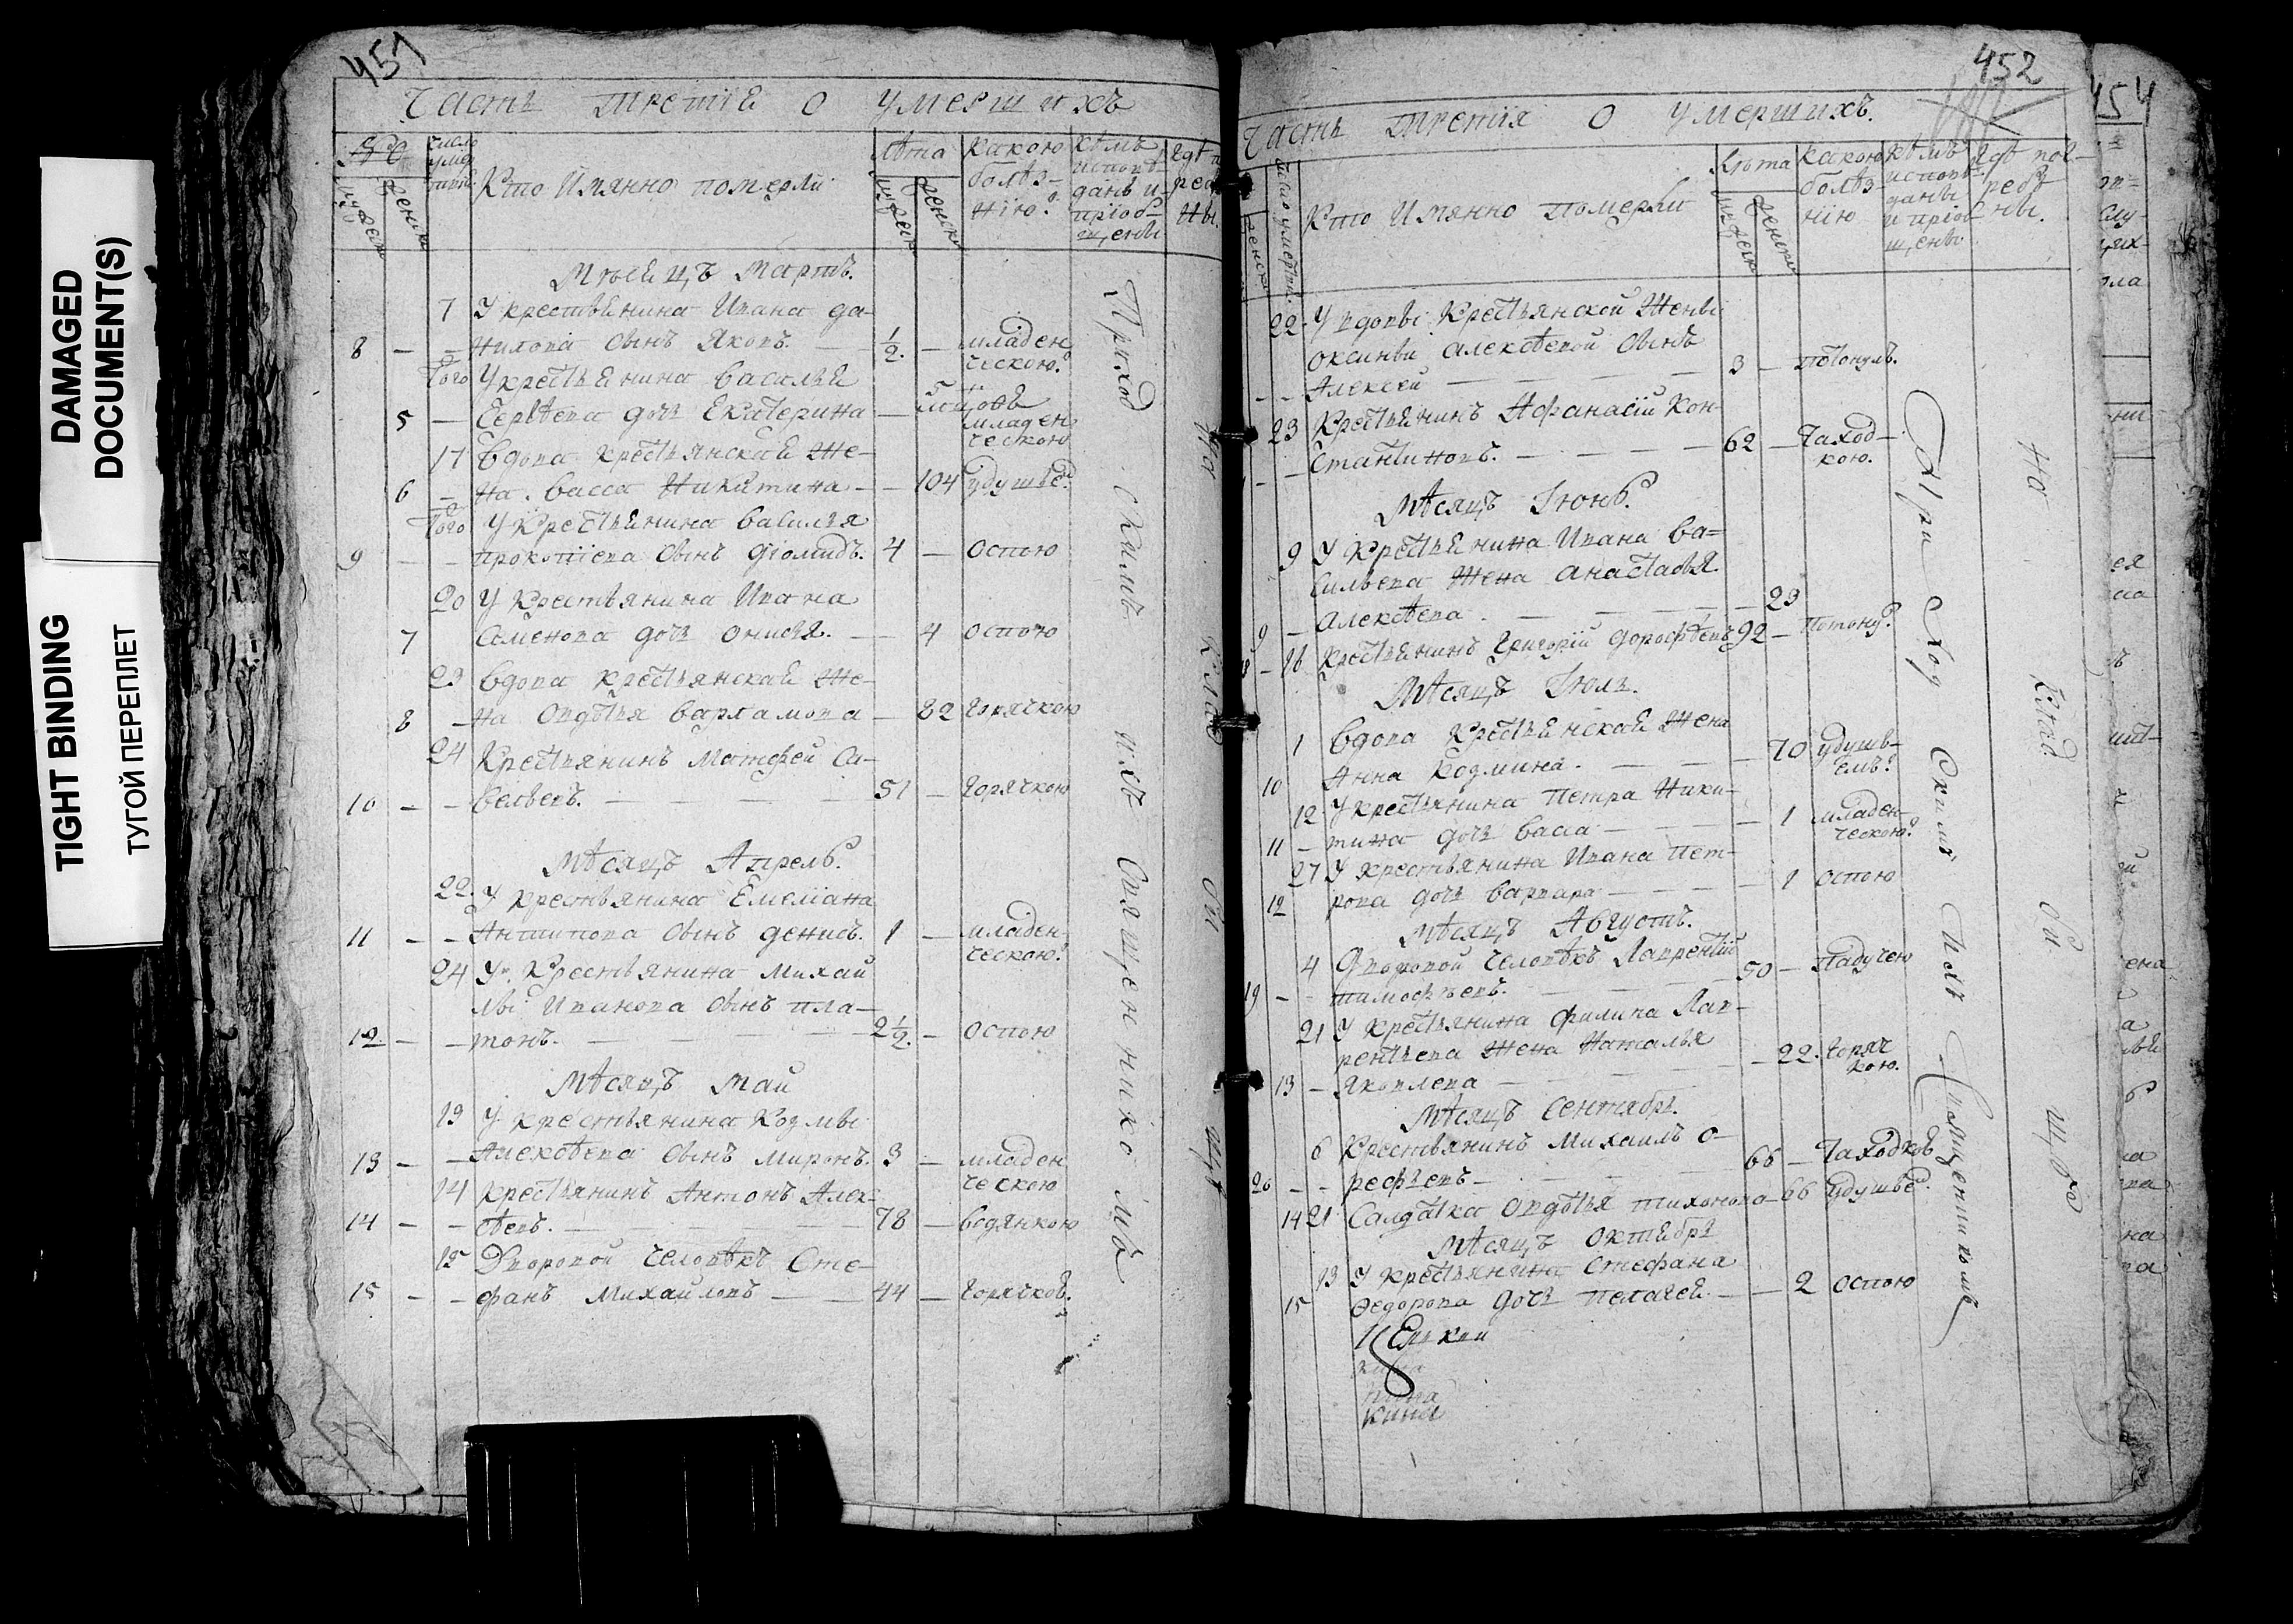 DAMAGED
DOCUMENT(S)
TIGHT BINDING
ТУГОЙ ПЕРЕПЛЕТ
451
Часть третія о умершихъ
№
число умер
Кто Имянно померли
Лѣта
какою болѣз-нію
кѣмъ исповѣ-даны и пріоб-щены
Мѣсяцъ Мартъ.
7 У крестьянина Ивана да-
8 — — нилова сынъ Яковъ. — 1/2. — младенческою
того У крестьянина Василья
5 — Сергѣева дочь Екатерина — 5 младенческою
17 Вдова крестьянская же-
6 — на Васса Никитина — — 104 удушье
того У крестьянина Василья
9 — — прокопіева сынъ Діомидъ. 4 — оспою
20 У крестьянина Ивана
7 Семенова дочь Онисья. — — 4 оспою
23 Вдова крестьянская же-
8 — на Овдотья Варламова — 82 горячкою
24 Крестьянинъ Матфей Са-
10 — — вельевъ. — 51 — горячкою
Мѣсяцъ Апрель.
22 У крестьянина Емеліана
11 — — Антипова сынъ Денисъ. 1 — младенческою
24 У крестьянина Михай
лы Иванова сынъ пла-
12. — — тонъ. — 2 1/2. — оспою
Мѣсяцъ Май
19 У крестьянина Козмы
13 — — Алексѣева сынъ Миронъ. 3 — младенческою
14 крестьянинъ Антонъ Алек-
14 — — сѣевъ. — 78 — водянкою
15 Дворовой человѣкъ Сте-
15 — — фанъ Михайловъ — 44 — горячкою
Приход скимъ ихъ Священникомъ
На клад би щѣ
452
Часть третія о умершихъ.
Кто Имянно померли
Лѣта
какою болѣз-нію
кѣмъ исповѣ-даны и пріоб-щены
гдѣ пог-ребе-ны.
22 У вдовы крестьянской жены
Оксиньи Алексѣевой сынъ
— — Алексей — 3 — потонулъ.
23 Крестьянинъ Афанасій Кон-
— стантиновъ. — 62 — чахоткою.
Мѣсяцъ Іюнь
9 У крестьянина Ивана Ва-
сильева жена Анастасья
9 — Алексѣева. — 29
16 Крестьянинъ Григорій Дорофѣевъ 92 — потону
Мѣсяцъ Іюль.
1 Вдова крестьянская жена
10 Анна Козмина. — 70 удушьемъ
12 У крестьянина Петра Ники-
11 — тина дочь Васса — 1 младенческою
27 У крестьянина Ивана Пет-
12 рова дочь Варвара — 1 оспою
Мѣсяцъ Августъ.
4 Дворовой человѣкъ Лаврентій
19 — — тимофѣевъ. — 50 — падучею
21 У крестьянина Филипа Лав-
рентьева жена Наталья
13 — Яковлева — 22. горячкою.
Мѣсяцъ Сентябрь.
6 Крестьянинъ Михаилъ о-
20 — — рефьевъ — 66 — чахоткою
14 21 Салдатка Овдотья тихонова — 66 удушье
Мѣсяцъ Октябрь
13 У крестьянина Стефана
15 Федорова дочь Пелагея — 2 оспою
Приход скимъ ихъ Священникомъ
на клад би щѣ
454